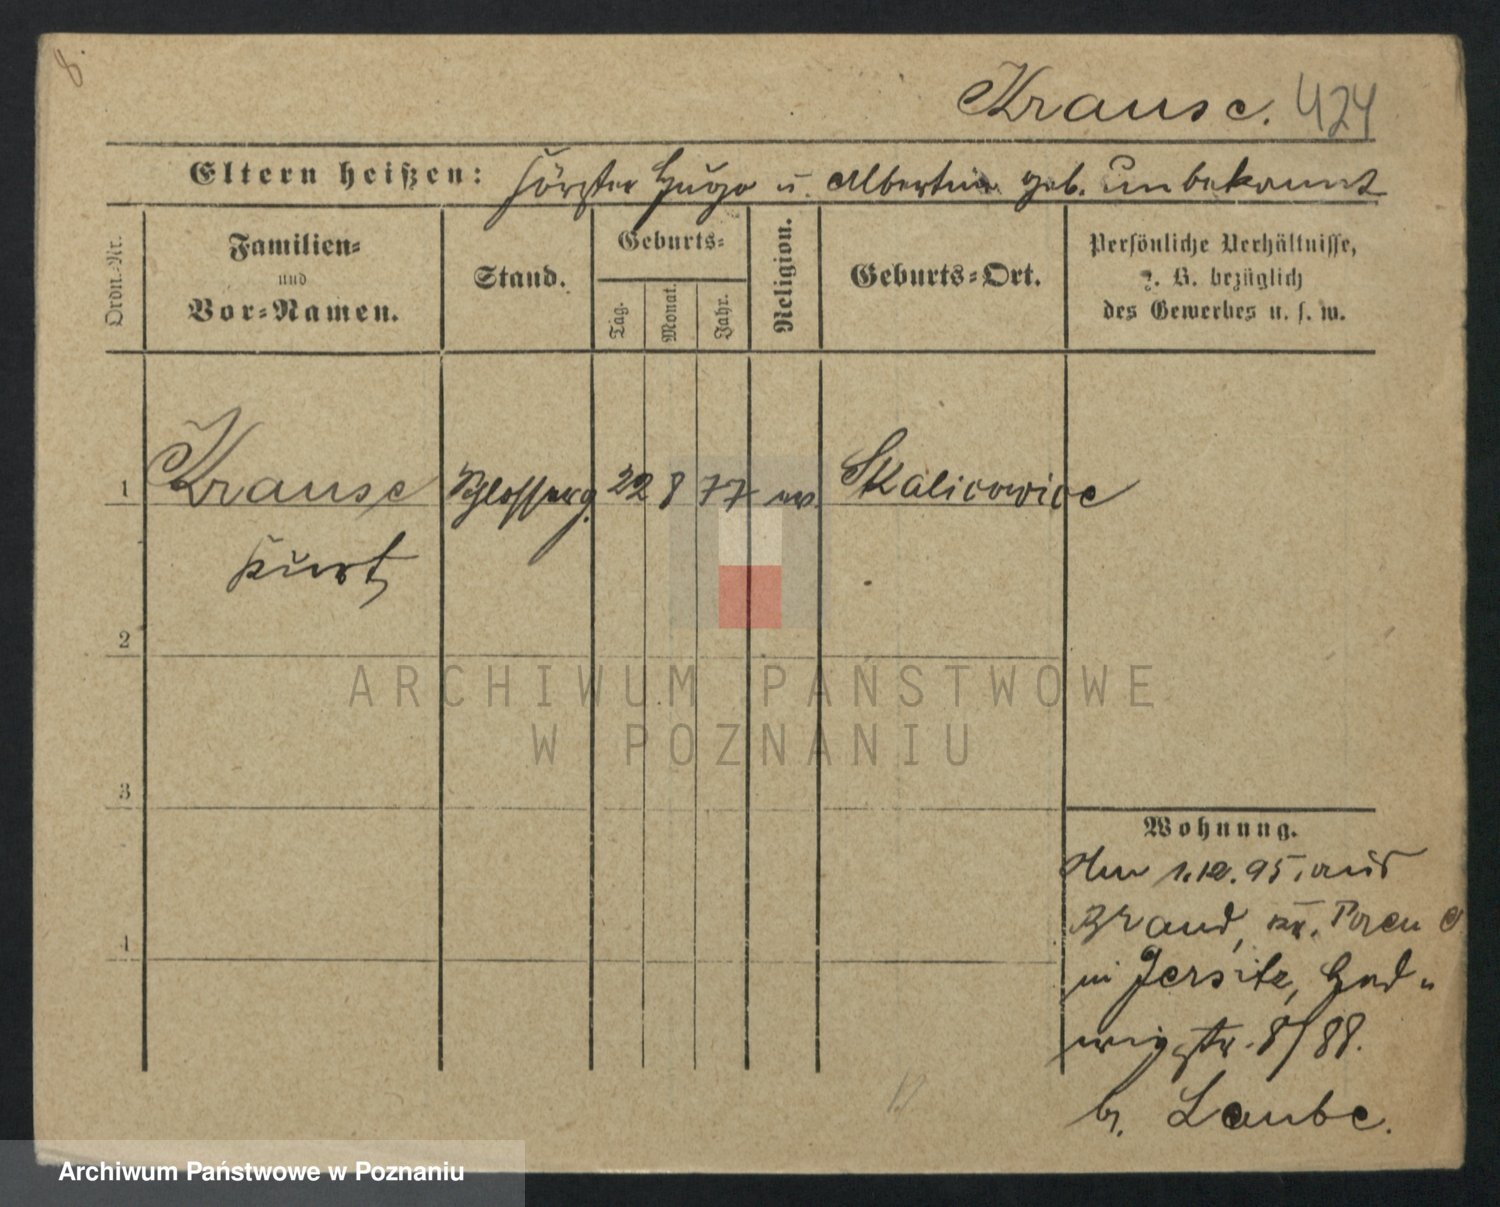 8.
Krause. 424
Eltern heißen: Förster Hugo u. Albertine geb. Unbekannt
Ordn.-Nr.
Familien-
und
Vor-Namen.
Stand.
Geburts-
Tag.
Monat.
Jahr.
Religion.
Geburts-Ort.
Persönliche Verhältnisse,
z. B. bezüglich
des Gewerbes u. s. w.
1 Krause Schlosserg. 22 8 77 ev. Skalicowice
Kurt
2
3
4
Wohnung.
Am 1.12.95. aus
Brand, Kr. Posen
in Jersitz, Hed-
wigstr. 8/88.
b. Laube.
ARCHIWUM PAŃSTWOWE
W POZNANIU
Archiwum Państwowe w Poznaniu